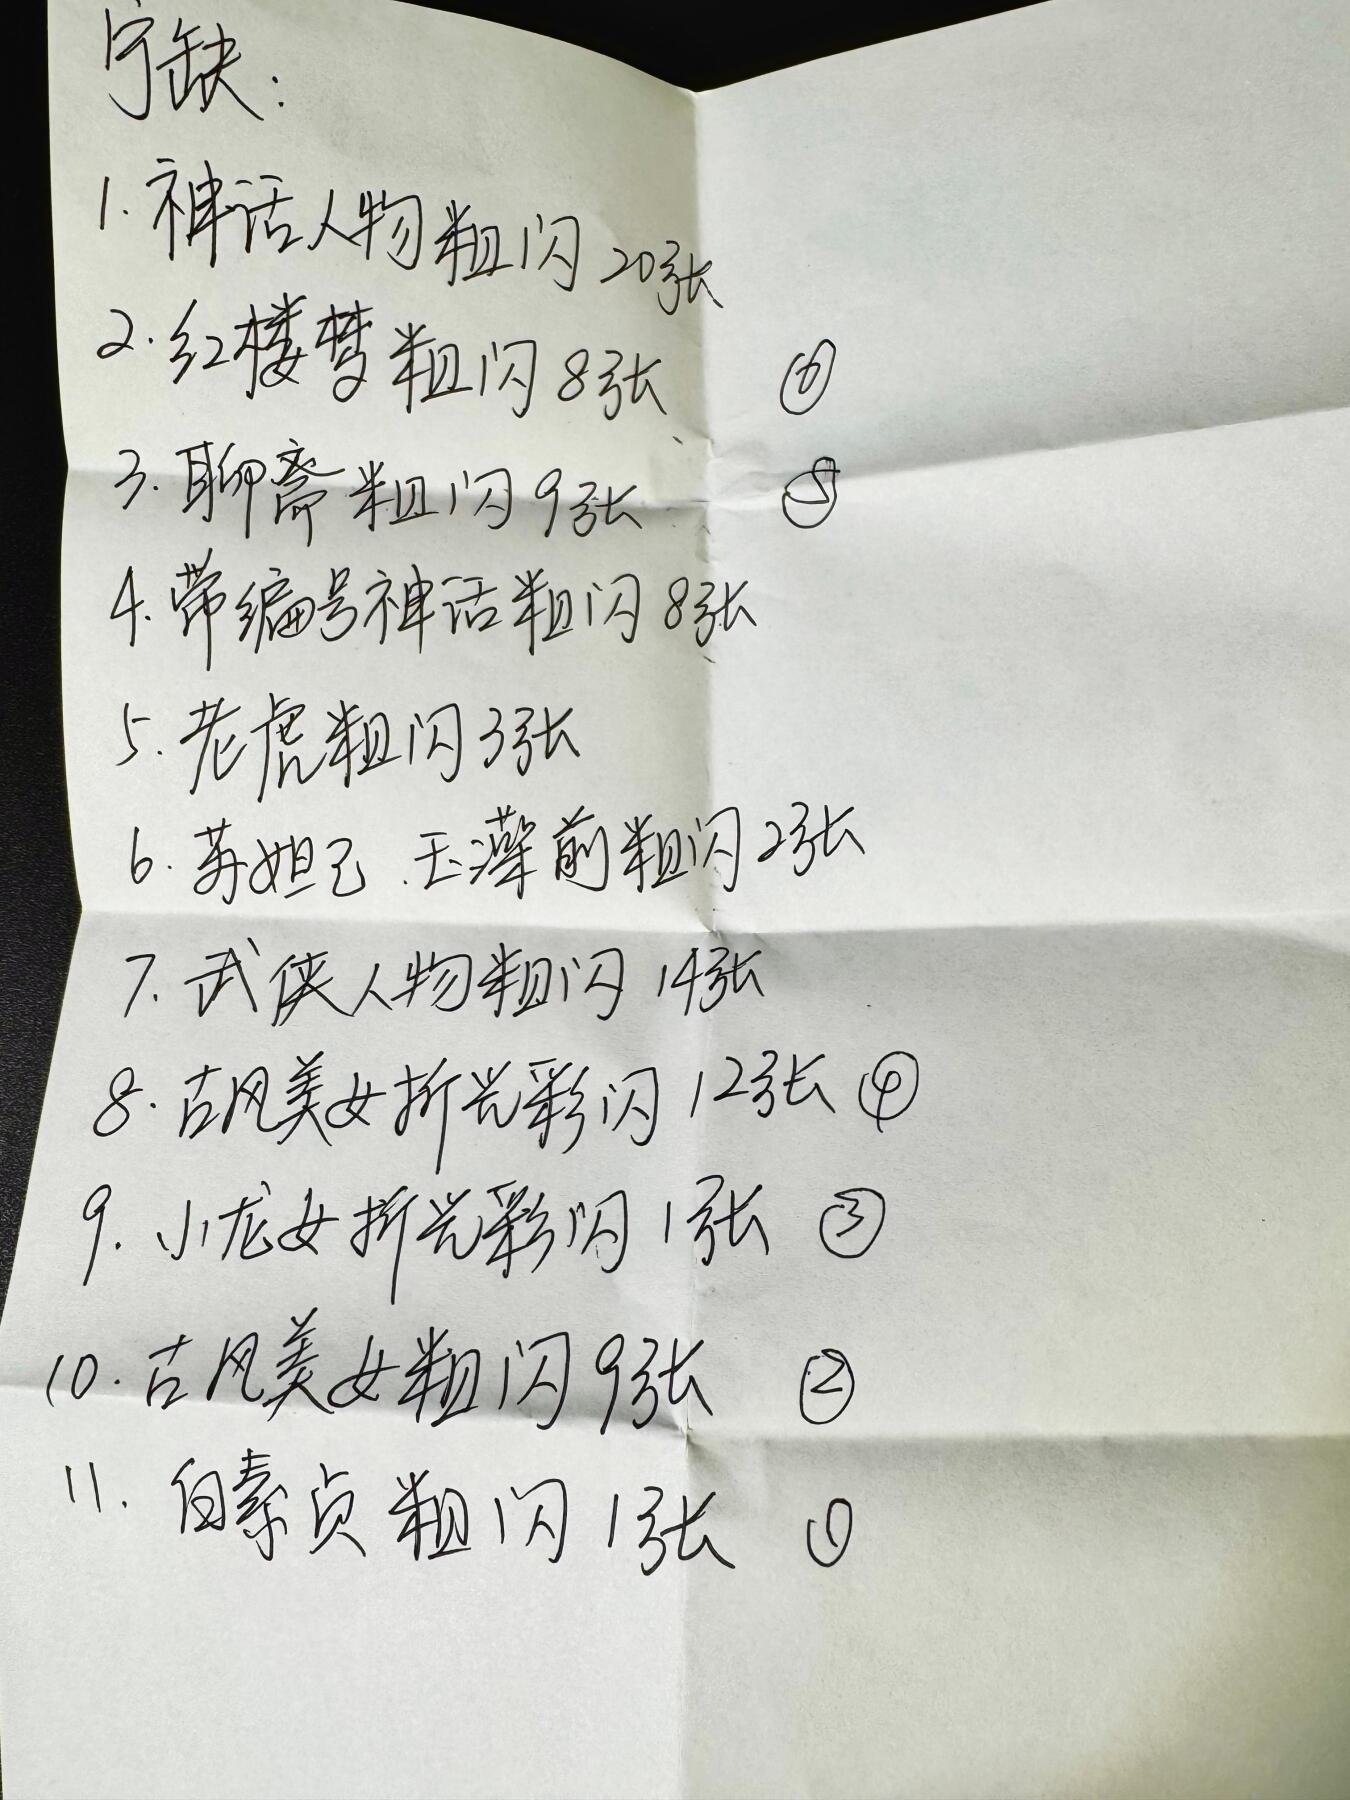 宁缺:
1. 神话人物粗闪 20张
2. 红楼梦粗闪 8张 ⑥
3. 聊斋粗闪 9张 ⑤
4. 带编号神话粗闪 8张
5. 老虎粗闪 3张
6. 苏妲己.玉藻前粗闪 2张
7. 武侠人物粗闪 14张
8. 古风美女折光彩闪 12张 ④
9. 小龙女折光彩闪 1张 ③
10. 古风美女粗闪 9张 ②
11. 白素贞粗闪 1张 ①